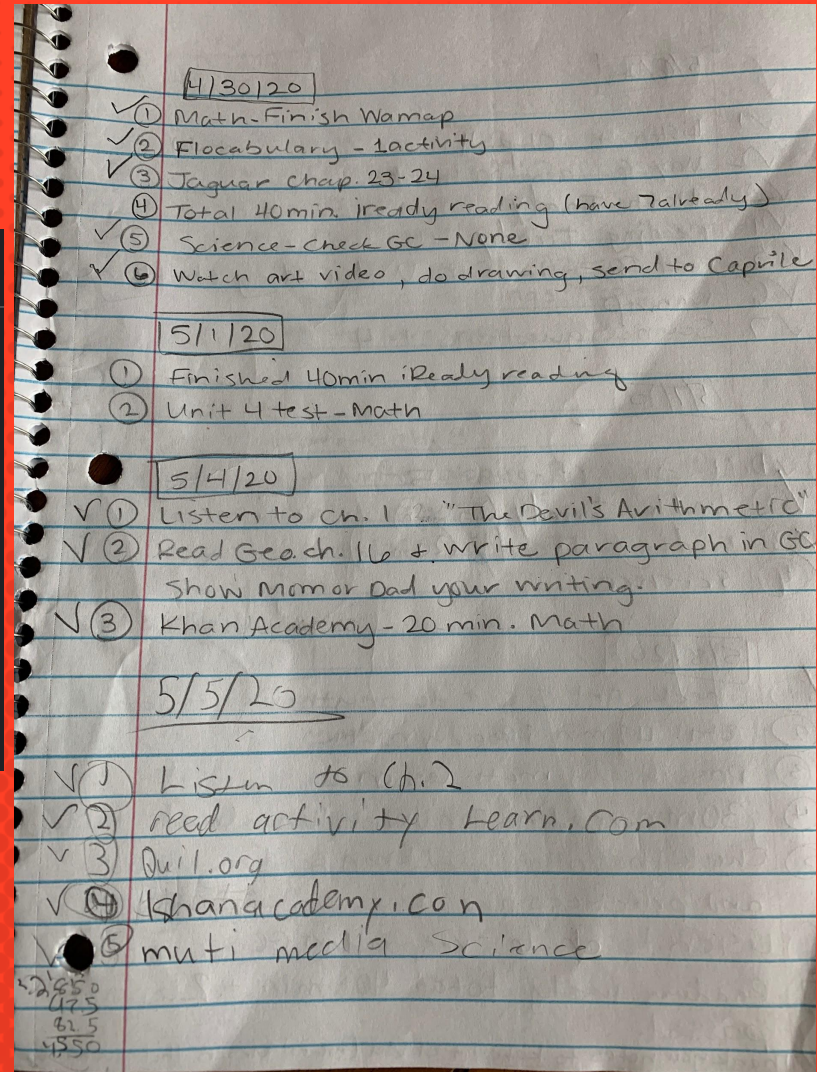 4/30/20
✓ ① Math-Finish Wamap
✓ ② Flocabulary - 1activity
✓ ③ Jaguar Chap. 23-24
④ Total 40min. iready reading (have 7already)
✓ ⑤ Science - Check GC - None
✓ ⑥ Watch art video, do drawing, send to Caprile
5/1/20
① Finished 40min iReady reading
② Unit 4 test - Math
5/4/20
✓ ① Listen to Ch. 1 "The Devil's Arithmetic"
✓ ② Read Geo. ch. 16 + write paragraph in GC
Show Mom or Dad your writing.
✓ ③ Khan Academy - 20 min. Math
5/5/20
✓ ① Listen to Ch. 2
✓ ② read activity Learn.com
✓ ③ Quil.org
✓ ④ Khanacademy.con
✓ ⑤ muti media Science
2850
475
825
4550